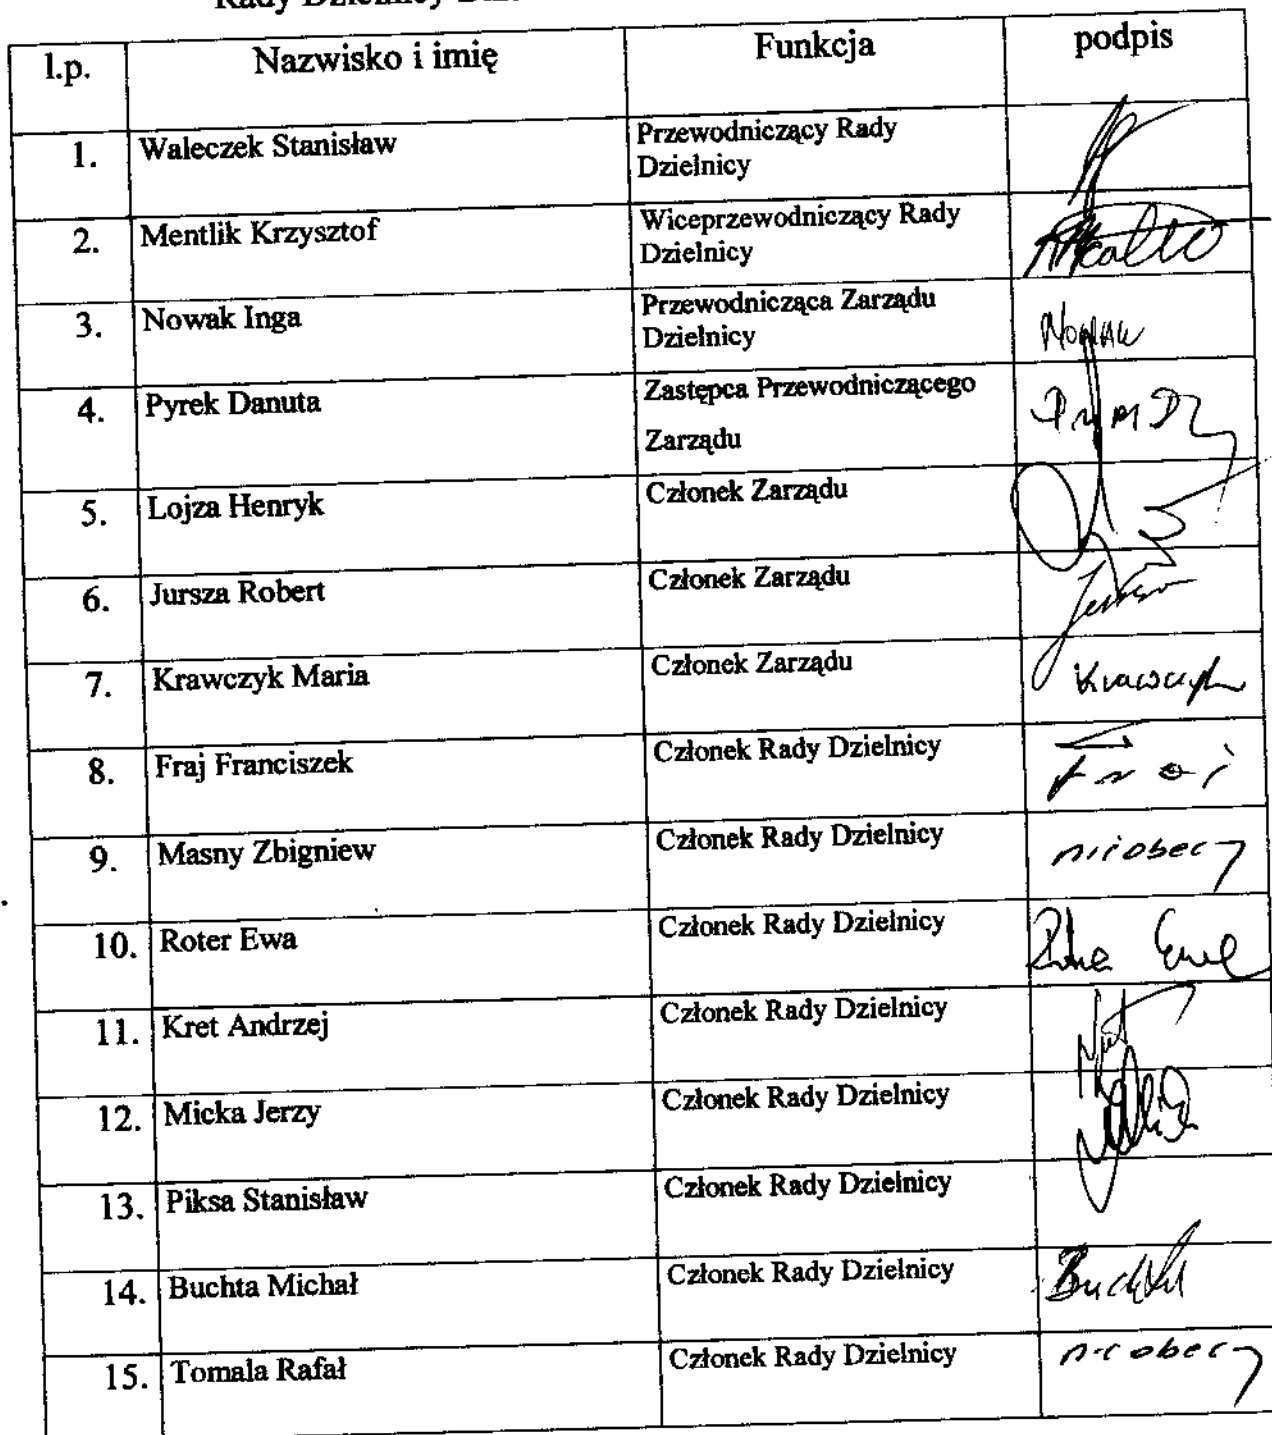 Rady Dzielnicy
l.p. Nazwisko i imię Funkcja podpis
1. Waleczek Stanisław Przewodniczący Rady
Dzielnicy
2. Mentlik Krzysztof Wiceprzewodniczący Rady
Dzielnicy
3. Nowak Inga Przewodnicząca Zarządu
Dzielnicy
Nowak
4. Pyrek Danuta Zastępca Przewodniczącego
Zarządu
5. Lojza Henryk Członek Zarządu
6. Jursza Robert Członek Zarządu
7. Krawczyk Maria Członek Zarządu Krawczyk
8. Fraj Franciszek Członek Rady Dzielnicy Fraj
9. Masny Zbigniew Członek Rady Dzielnicy nieobecny
10. Roter Ewa Członek Rady Dzielnicy Roter Ewa
11. Kret Andrzej Członek Rady Dzielnicy
12. Micka Jerzy Członek Rady Dzielnicy
13. Piksa Stanisław Członek Rady Dzielnicy
14. Buchta Michał Członek Rady Dzielnicy Buchta
15. Tomala Rafał Członek Rady Dzielnicy nieobecny